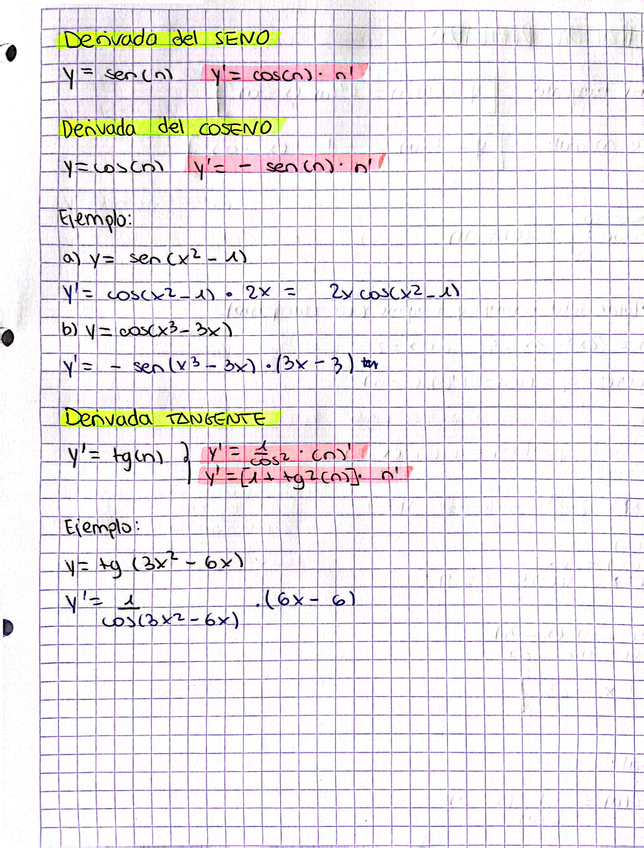 Derivada del SENO
y = sen(n) y' = cos(n) · n'
Derivada del COSENO
y = cos(n) y' = - sen(n) · n'
Ejemplo:
a) y = sen(x² - 1)
y' = cos(x² - 1) · 2x = 2x cos(x² - 1)
b) y = cos(x³ - 3x)
y' = - sen(x³ - 3x) · (3x - 3)
Derivada TANGENTE
y' = tg(n) } y' = 1/cos² · (n)'
y' = [1 + tg2(n)] · n'
Ejemplo:
y = tg (3x² - 6x)
y' = 1/cos(3x² - 6x) · (6x - 6)